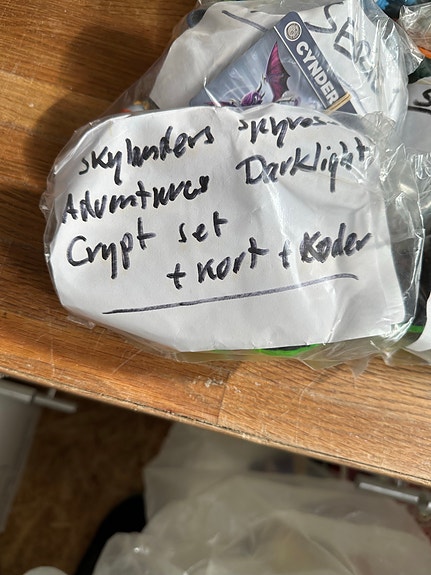 CYNDER
Skylanders
Adventures Darklight
Crypt set
+ Kort + Koder